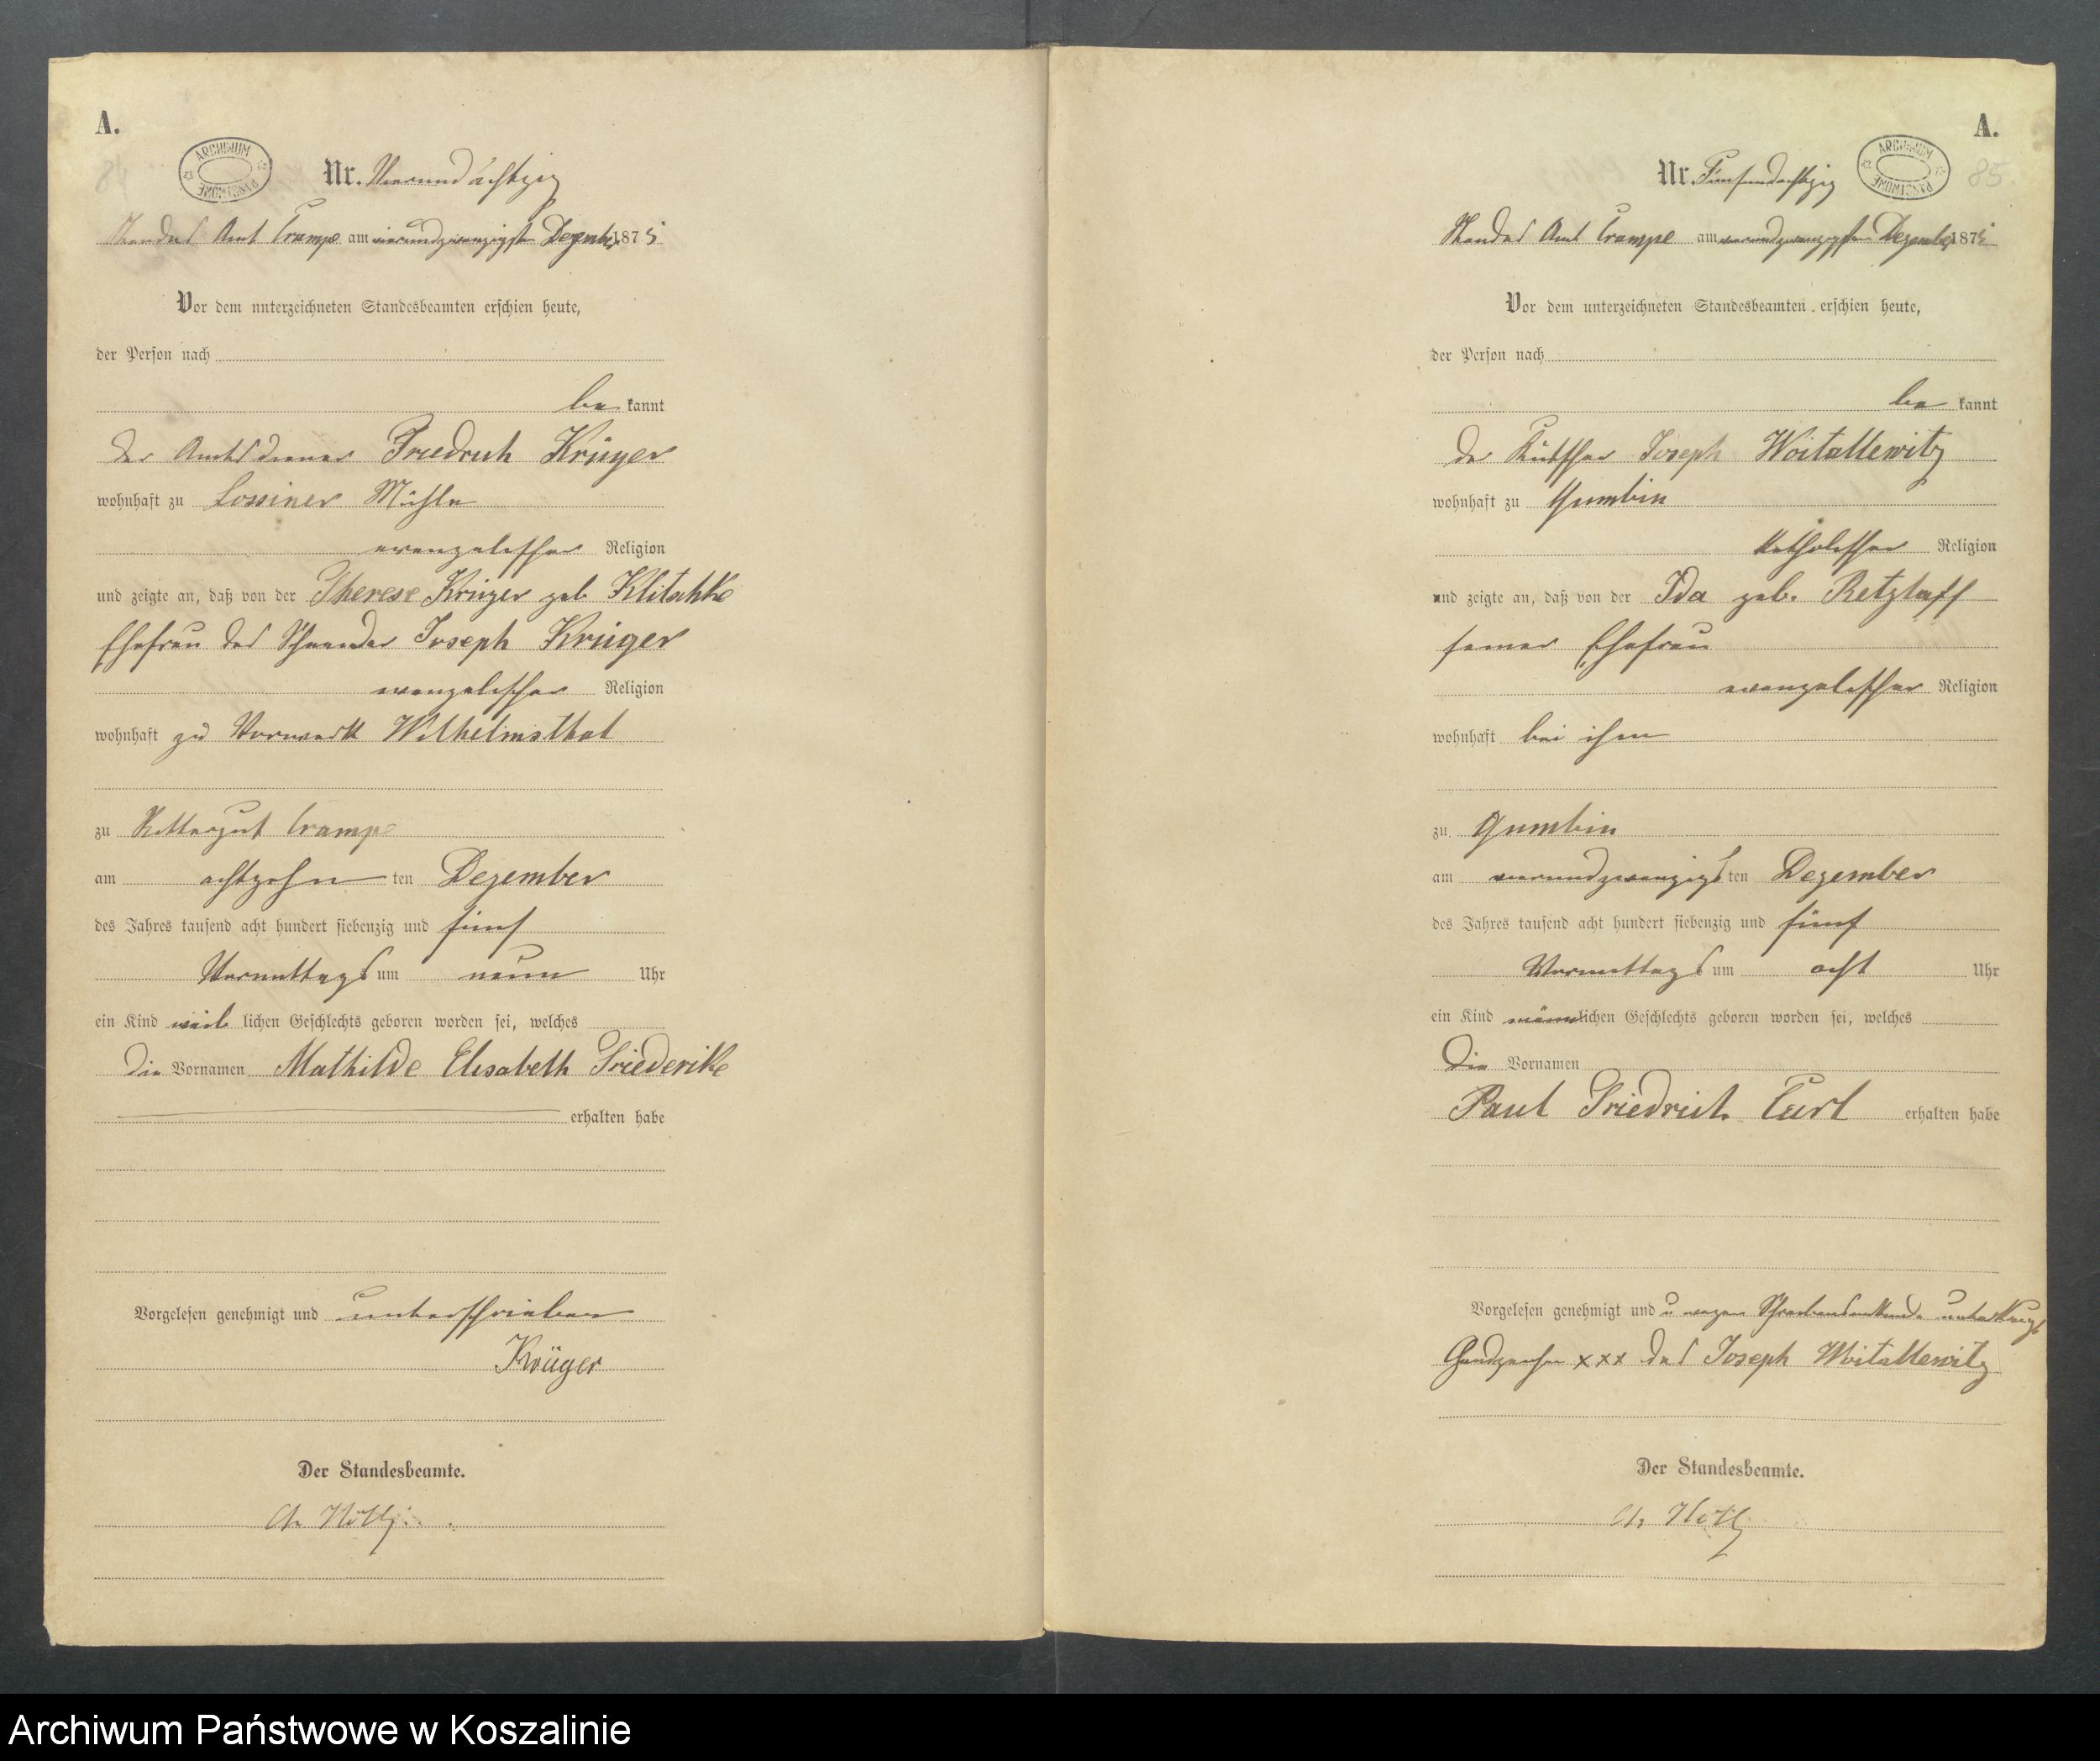 A.
84
ARCHIWUM PAŃSTWOWE
Nr. Vierundachtzig
Standes Amt Crampe am vierundzwanzigsten Dezember 1875
Vor dem unterzeichneten Standesbeamten erschien heute,
der Person nach
be kannt
der Amtsdiener Friedrich Krüger
wohnhaft zu Lossiner Mühle
evangelischer Religion
und zeigte an, daß von der Therese Krüger geb. Klitschke
Ehefrau des Joseph Krüger
evangelischer Religion
wohnhaft zu Vorwerk Wilhelmsthal
zu Rittergut Crampe
am achtzehn ten Dezember
des Jahres tausend acht hundert siebenzig und fünf
Vormittags um neun Uhr
ein Kind weib lichen Geschlechts geboren worden sei, welches
die Vornamen Mathilde Elisabeth Friederike
erhalten habe
Vorgelesen genehmigt und unterschrieben
Krüger
Der Standesbeamte.
A.
85
ARCHIWUM PAŃSTWOWE
Nr. Fünfundachtzig
Standes Amt Crampe am vierundzwanzigsten Dezember 1875
Vor dem unterzeichneten Standesbeamten erschien heute,
der Person nach
be kannt
der Kutscher Joseph Woitallewitz
wohnhaft zu Gumbin
katholischer Religion
und zeigte an, daß von der Ida geb. Retzlaff
seiner Ehefrau
evangelischer Religion
wohnhaft bei ihm
zu Gumbin
am vierundzwanzigs ten Dezember
des Jahres tausend acht hundert siebenzig und fünf
Vormittags um acht Uhr
ein Kind männlichen Geschlechts geboren worden sei, welches
die Vornamen
Paul Friedrich Carl erhalten habe
Vorgelesen genehmigt und u wegen Schreibensunkunde unterkreuzt
Handzeichen xxx des Joseph Woitallewitz
Der Standesbeamte.
Archiwum Państwowe w Koszalinie